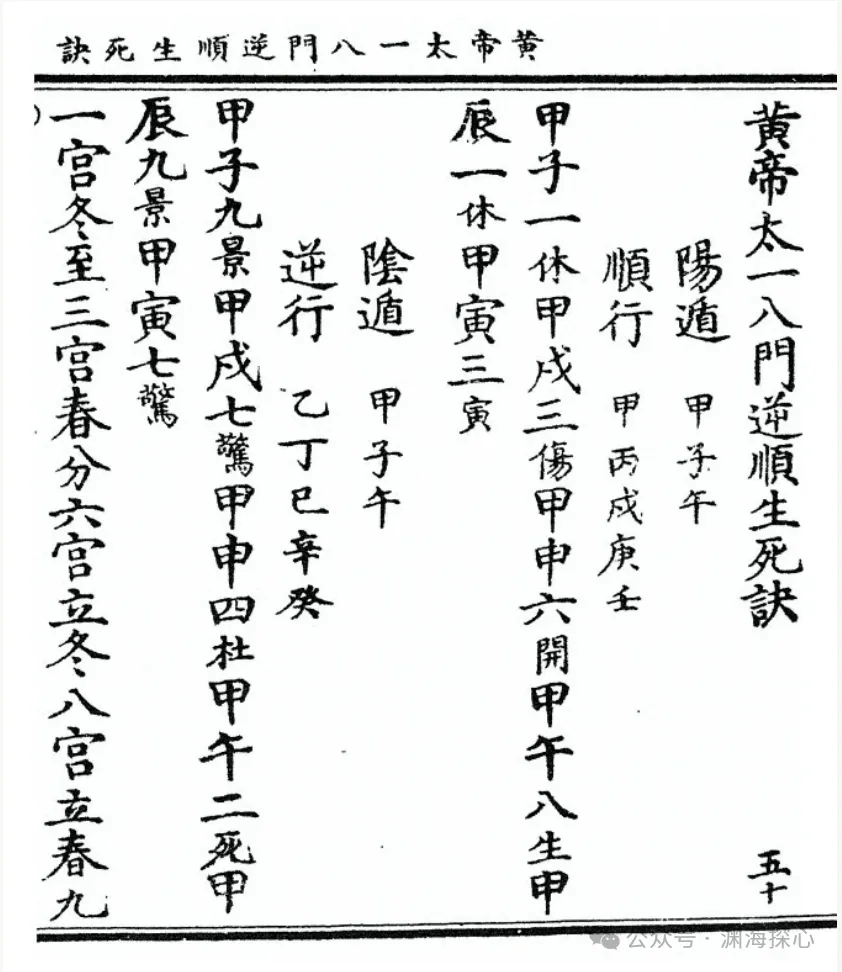 黄帝太一八門逆順生死訣
黄帝太一八門逆順生死訣 五十
陽遁 甲子午
順行 甲丙戍庚壬
甲子一休甲戍三傷甲申六開甲午八生甲
辰一休甲寅三寅
陰遁 甲子午
逆行 乙丁巳辛癸
甲子九景甲戍七驚甲申四杜甲午二死甲
辰九景甲寅七驚
一宫冬至三宫春分六宫立冬八宫立春九
公众号 · 渊海探心